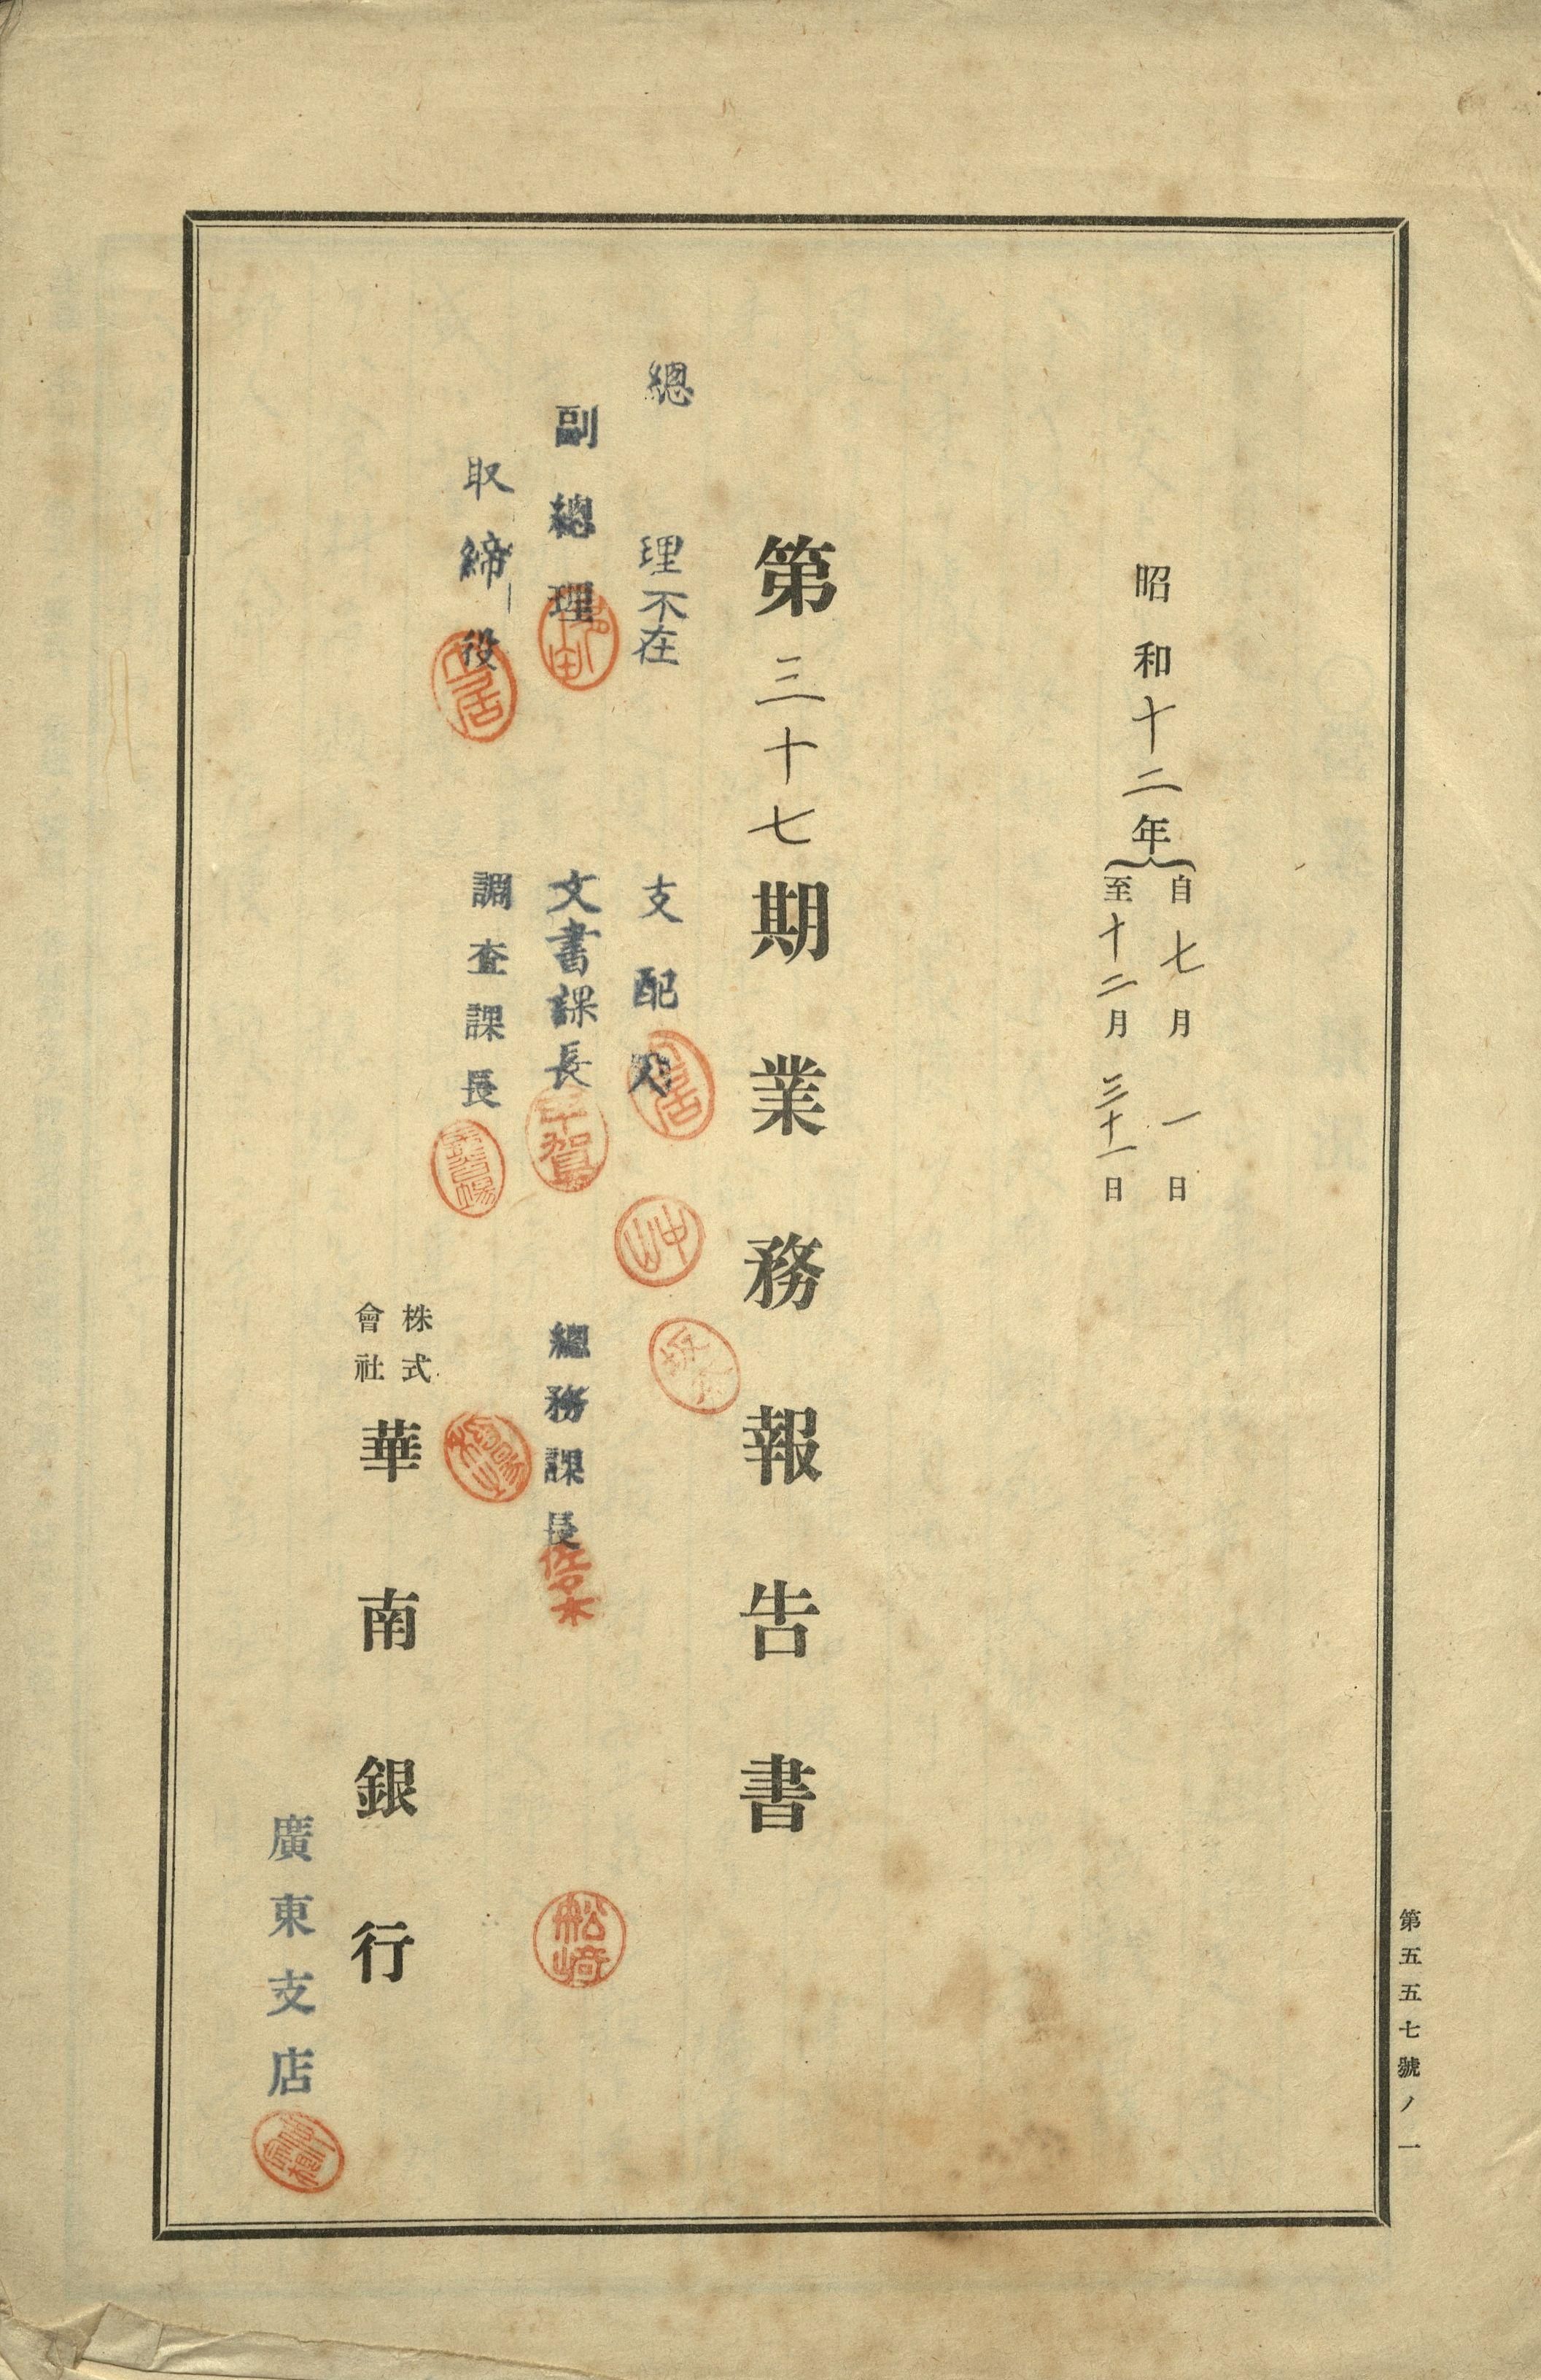 昭和十二年
自七月一日
至十二月三十一日
第三十七期業務報告書
總理不在
支配人
副總理
文書課長
總務課長
佐々木
松崎
取締役
調査課長
株式
會社
華南銀行
廣東支店
第五五七號ノ一